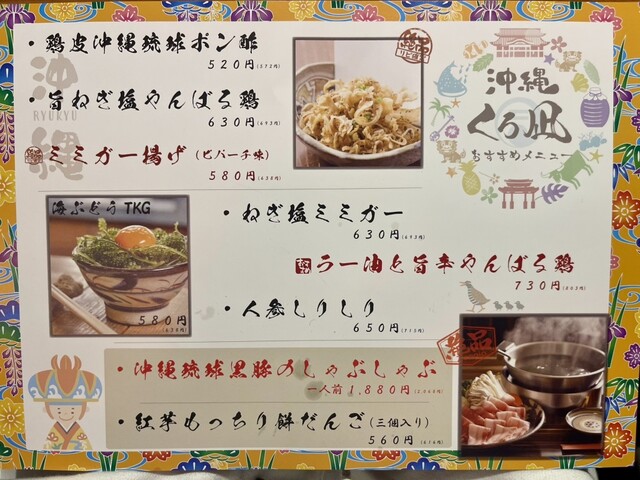 ・鶏皮沖縄琉球ポン酢
520円(572円)
・旨ねぎ塩やんばる鶏
630円(693円)
ミミガー揚げ(ピパーチ味)
580円(638円)
沖縄
RYUKYU
絶品
沖縄
くろ凪
おすすめメニュー
海ぶどうTKG
580円
(638円)
・ねぎ塩ミミガー
630円(693円)
ラー油と旨辛やんばる鶏
730円(803円)
・人参しりしり
650円(715円)
絶品
・沖縄琉球黒豚のしゃぶしゃぶ
一人前1,880円(2,068円)
・紅芋もっちり餅だんご(三個入り)
560円(616円)